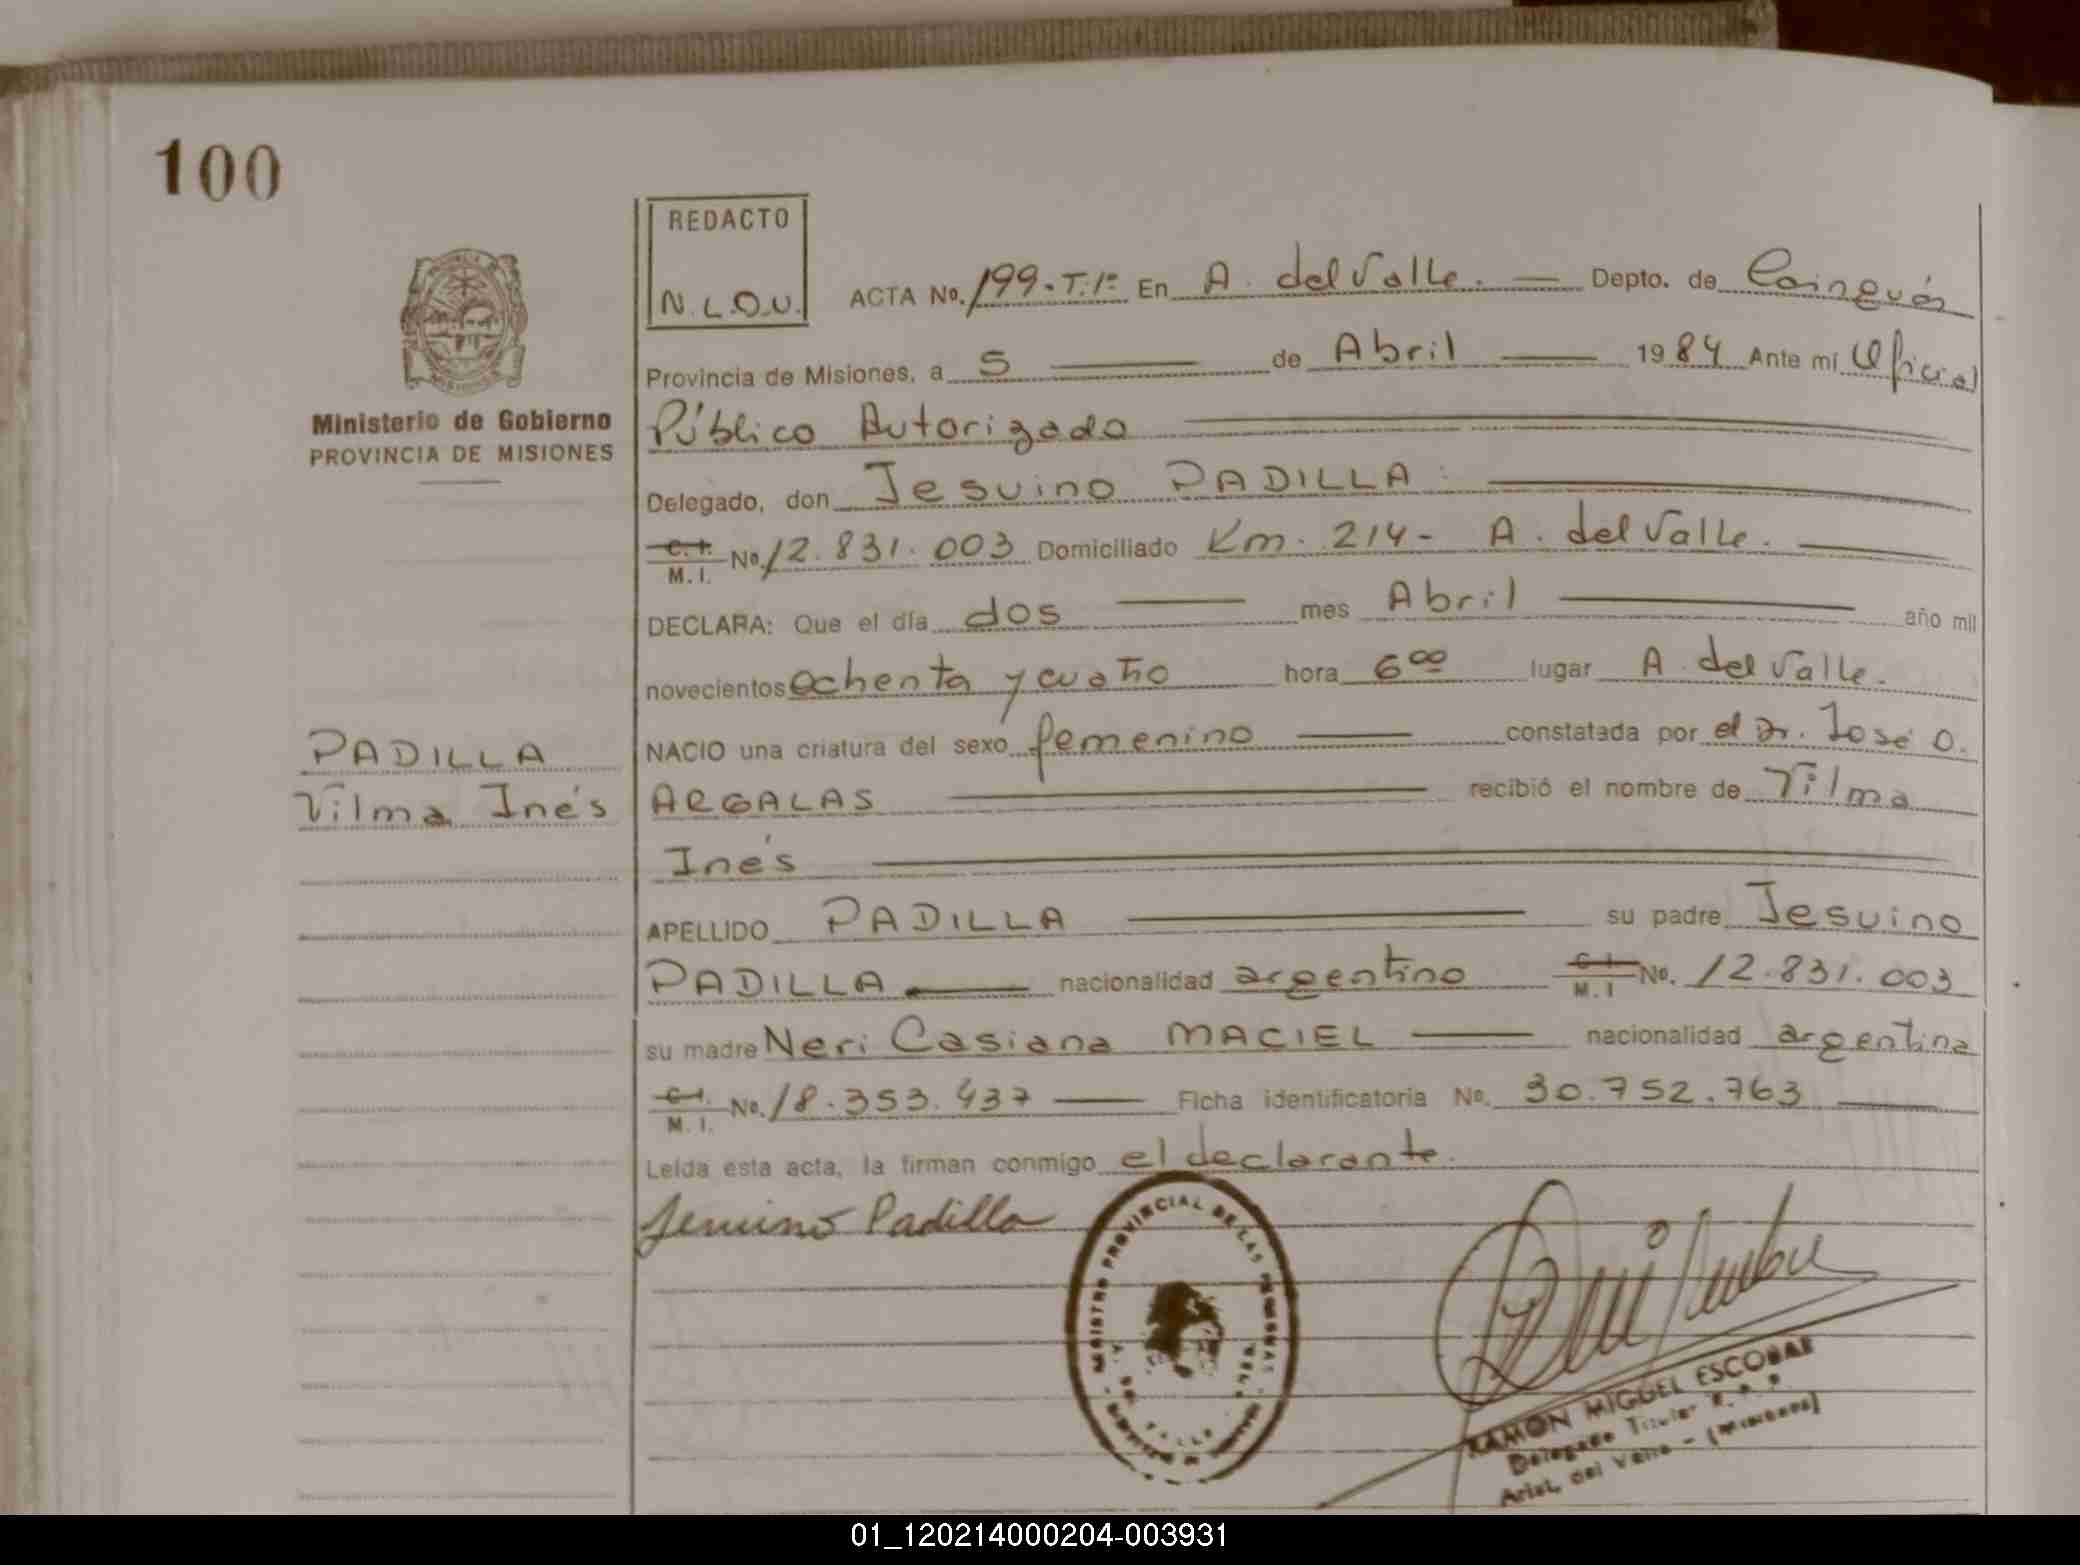 100
REDACTO
N.L.O.U.
ACTA No. 199.-T.1º En A. del Valle. Depto. de Cainguás
Provincia de Misiones, a 5 de Abril 1984 Ante mí Oficial
Ministerio de Gobierno
PROVINCIA DE MISIONES
Público Autorizado
Delegado, don Jesuino PADILLA
C. I. M. I. No. 12.831.003 Domiciliado Km. 214- A. del Valle.
DECLARA: Que el día dos mes Abril año mil
novecientos ochenta y cuatro hora 6 00 lugar A. del Valle.
PADILLA
Vilma Inés
NACIO una criatura del sexo femenino constatada por el Dr. José O.
ARGALAS recibió el nombre de Vilma
Inés
APELLIDO PADILLA su padre Jesuino
PADILLA nacionalidad argentino C. I. M. I No. 12.831.003
su madre Neri Casiana MACIEL nacionalidad argentina
C. I. M. I. No. 18.353.437 Ficha identificatoria No. 30.752.763
Leída esta acta, la firman conmigo el declarante.
Jesuino Padilla
PROVINCIAL DE LAS PERSONAS
RAMON MIGUEL ESCOBAR
Delegado Titular
Arist. del Valle - (Misiones)
01_120214000204-003931